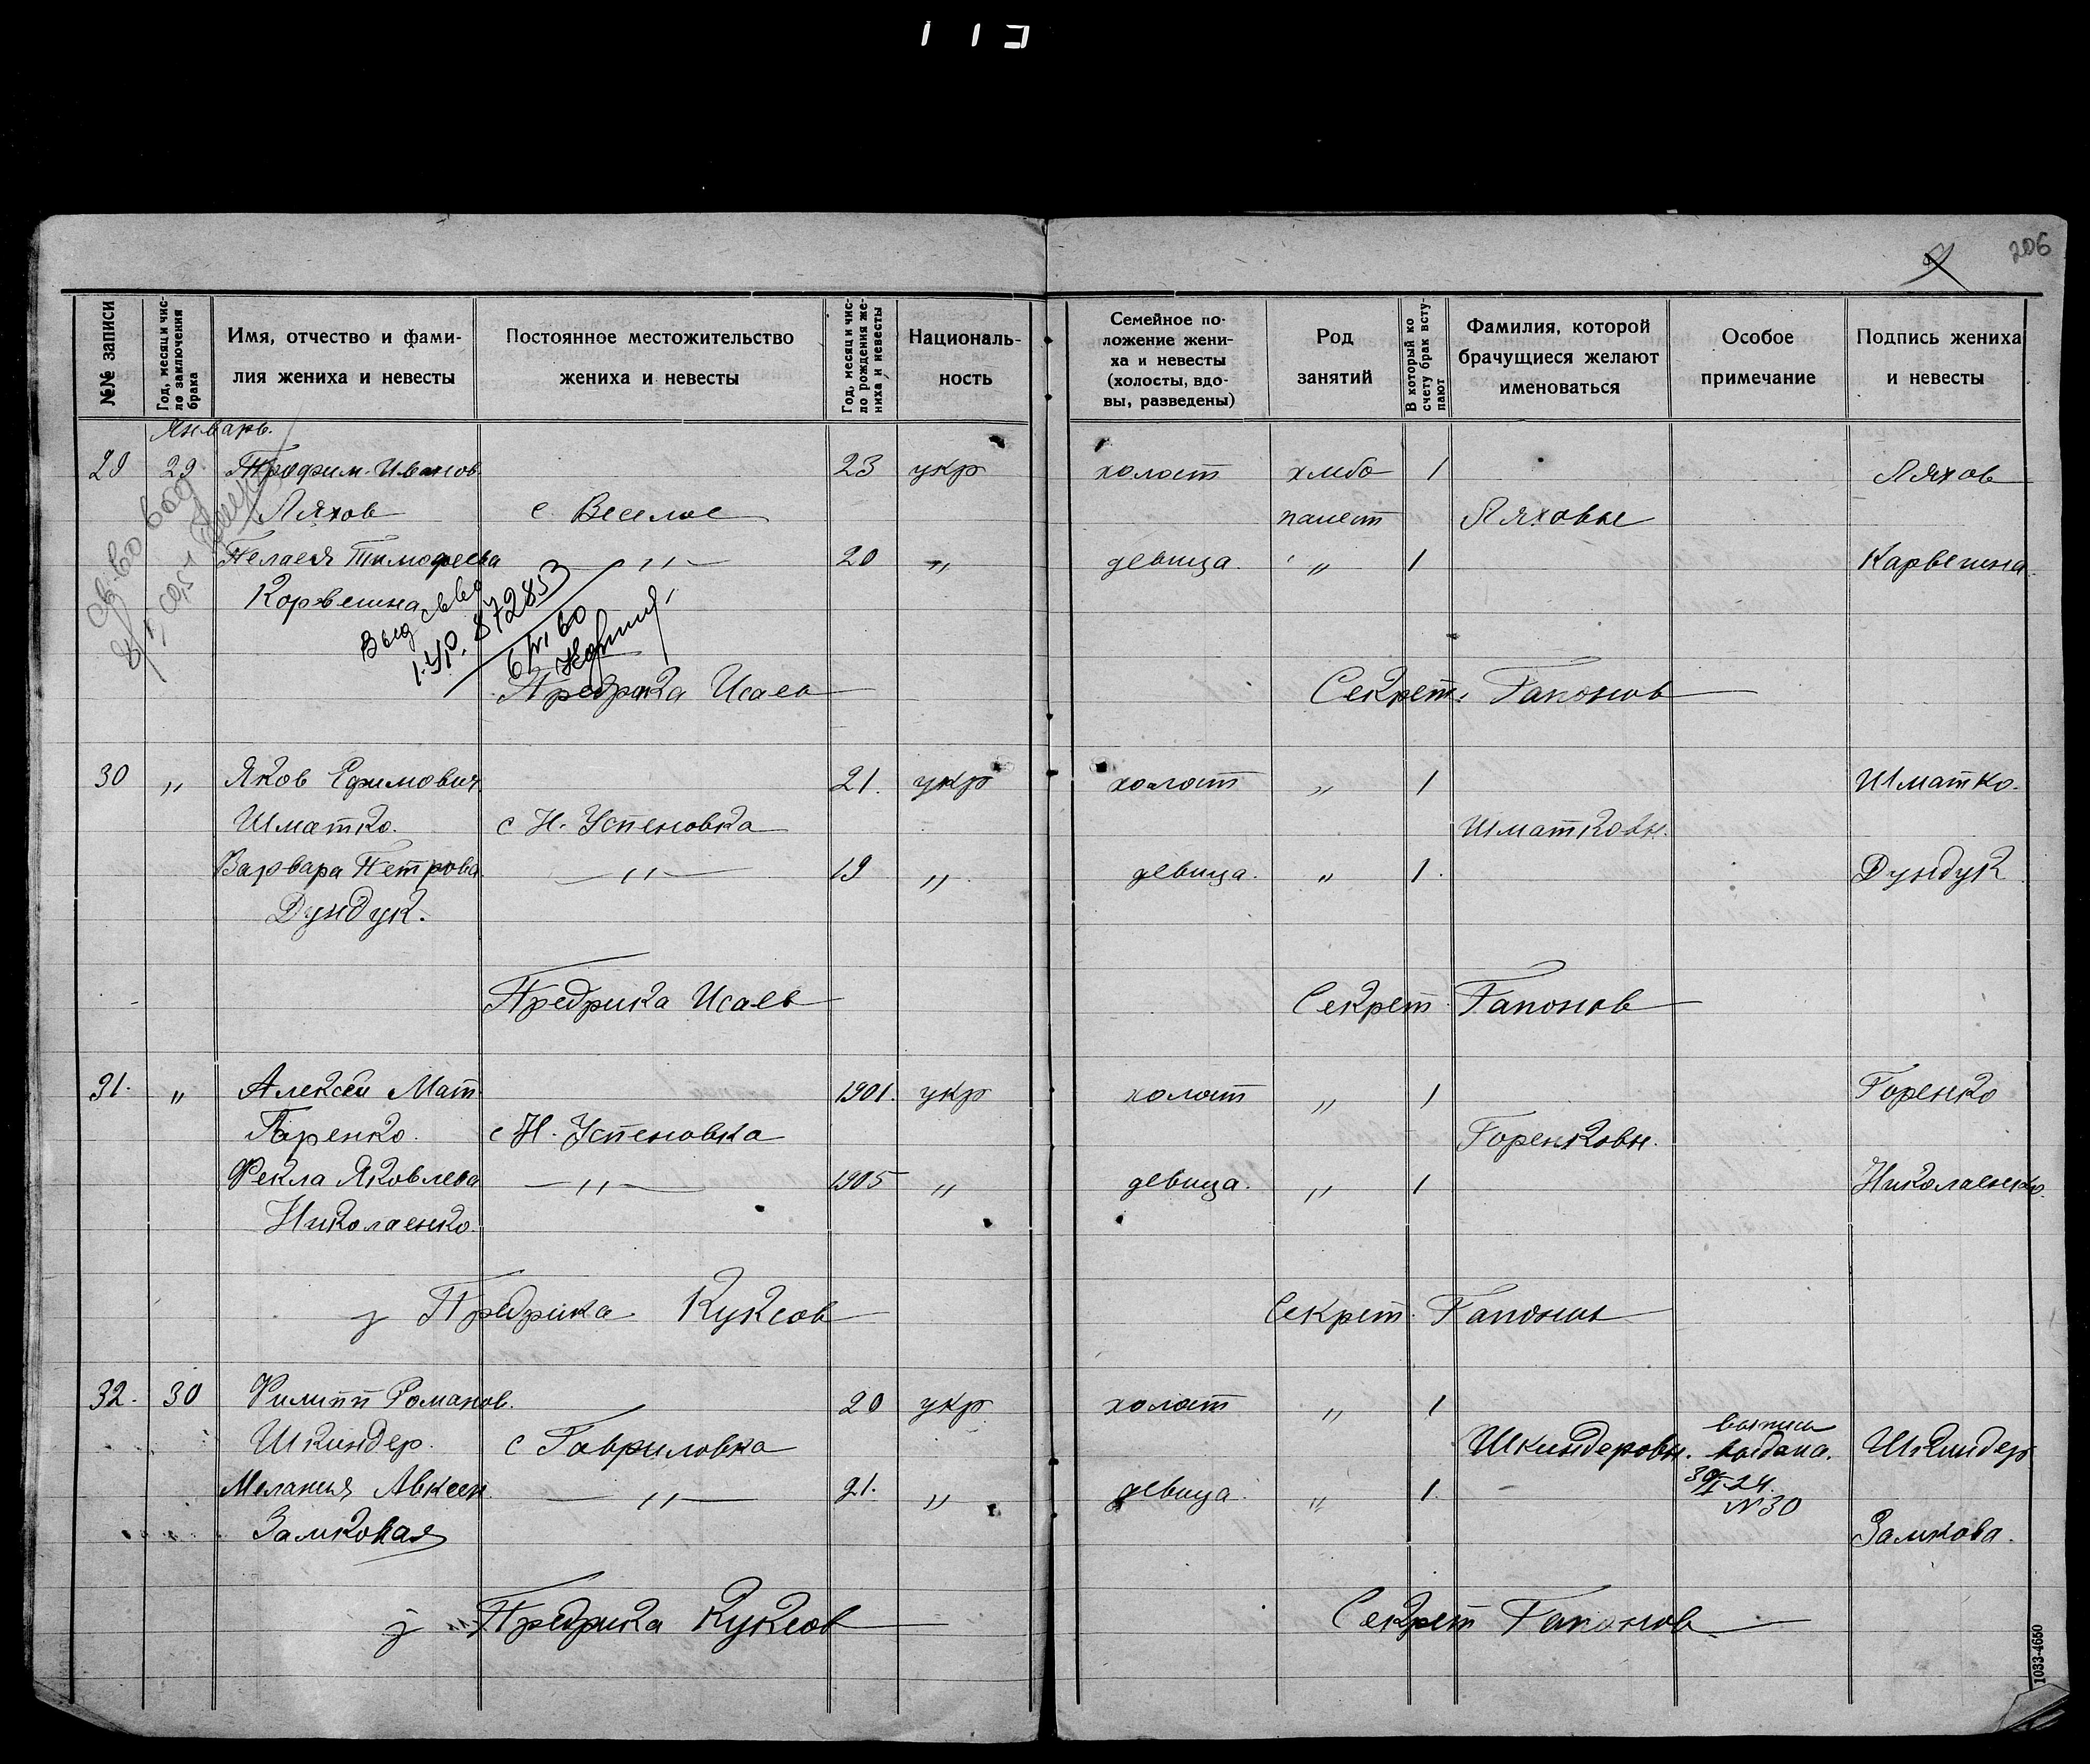 113
206
№№ записи
Год, месяц и число заключения брака
Имя, отчество и фамилия жениха и невесты
Постоянное местожительство жениха и невесты
Год, месяц и число рождения жениха и невесты
Националь-ность
Семейное положение жениха и невесты (холосты, вдовы, разведены)
Род занятий
В который ко счету брак вступают
Фамилия, которой брачущиеся желают именоваться
Особое примечание
Подпись жениха и невесты
Январь.
29 29 Трофим Иванов 23 укр холост хлебо 1 Ляхов
Ляхов с Веселое пашест Ляховы
Пелагея Тимофеева — „ — 20 „ девица. „ 1 Карвешна
Корвешна
Выд св-во
872853
Предрика Исаев Секрет. Гапонов
30 „ Яков Ефимович 21. укр холост „ 1 Шматко.
Шматко. с Н. Успеновка Шматковы.
Варвара Петрова — „ — 19 „ девица. „ 1. Дундук
Дундук.
Предрика Исаев Секрет. Гапонов
31. „ Алексей Мат. 1901. укр холост „ 1 Горенко
Горенко. с Н. Успеновка Горенковы.
Фекла Яковлева — „ — 1905 „ девица. „ 1 Николаенко.
Николаенко.
з Предрика Куксов Секрет. Гапонов
32. 30 Филипп Романов. 20 укр холост „ 1
Шкиндер. с Гавриловка Шкиндеровы. выпись выдана. Шкиндер
Мелания Авксен. — „ — 21. „ девица. „ 1. 30/I-24. №30
Замковая Замкова.
з Предрика Куксов Секрет Гапонов
1033-4650